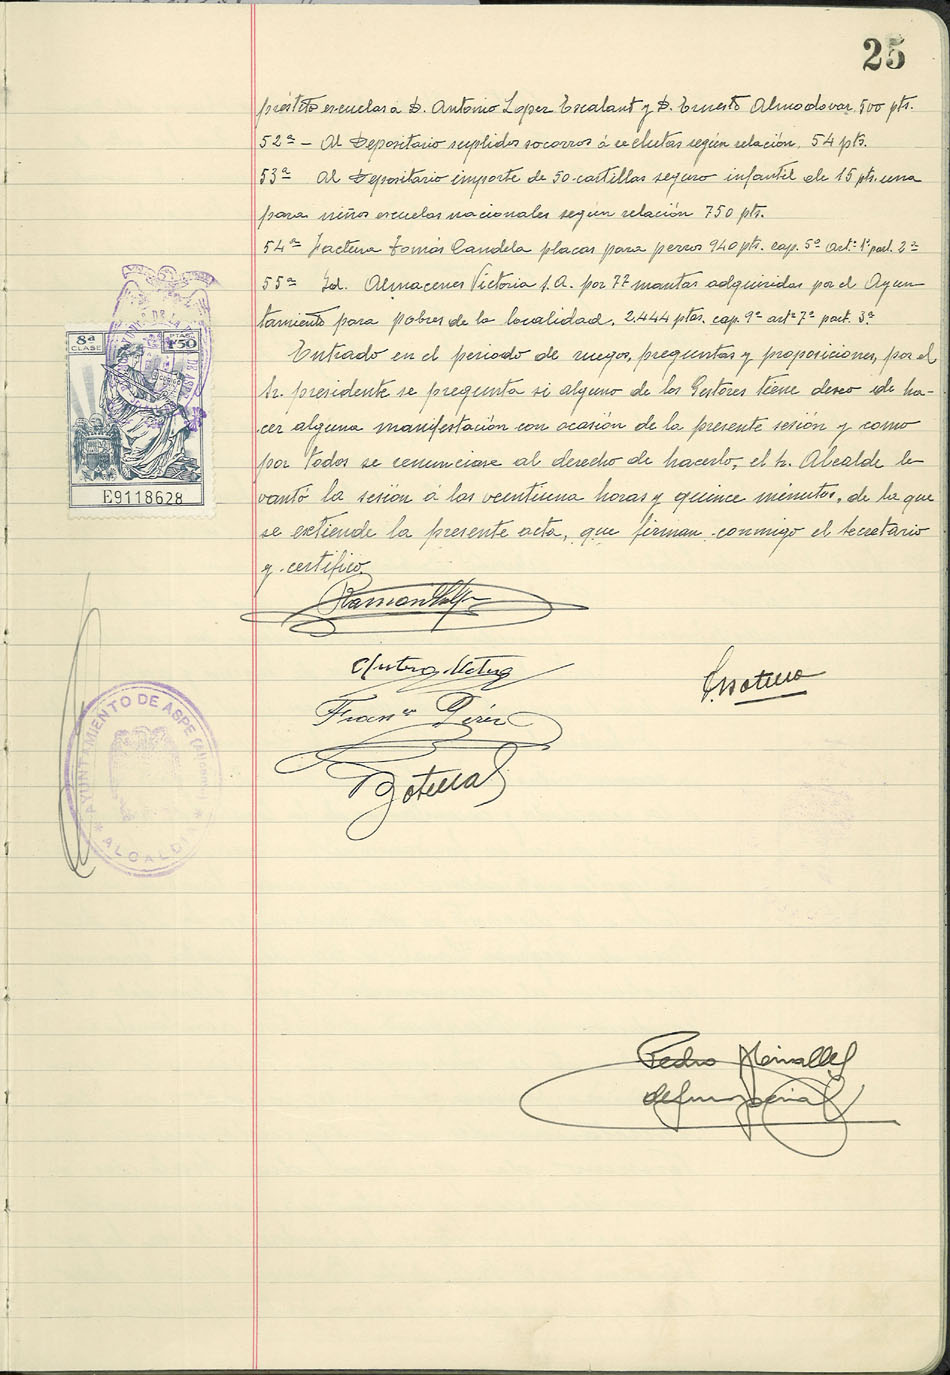 25
préstito escuelas á D. Antonio López Escalant y D. Ernesto Almodovar. 500 pts.
52ª - Al Depositario suplidos socorros á reclutas según relación. 54 pts.
53ª Al Depositario importe de 50 cartillas seguro infantil de 15 pts. una
para niños escuelas nacionales según relación 750 pts.
54ª Factura Tomás Candela placas para perros 940 pts. cap. 5º artº 1º part. 2ª
55ª Id. Almacenes Victoria S.A. por 77 mantas adquiridas por el Ayun
tamiento para pobres de la localidad. 2.444 ptas. cap. 9º artº 7º part. 3ª
Entrado en el periodo de ruegos, preguntas y proposiciones, por el
Sr. presidente se pregunta si alguno de los Gestores tiene deseo de ha-
cer alguna manifestación con ocasión de la presente sesión y como
por todos se renunciase al derecho de hacerlo, el Sr. Alcalde le
vantó la sesión á las veintiuna horas y quince minutos, de la que
se extiende la presente acta, que firman conmigo el Secretario
y certifico.
8ª
CLASE
PTAS
1'50
E9118628
Ramón
Franco Pérez
Botella
AYUNTAMIENTO DE ASPE (Alicante)
* ALCALDIA *
Pedro